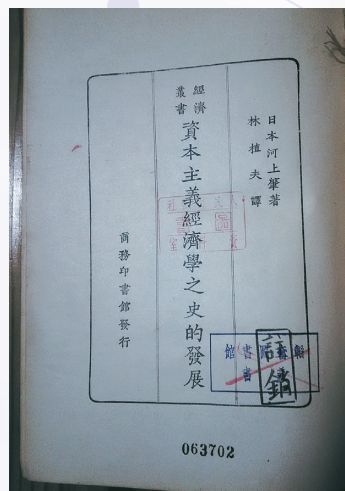 日本河上肇著
林植夫譯
經濟
叢書
資本主義經濟學之史的發展
商務印書館發行
註銷
063702